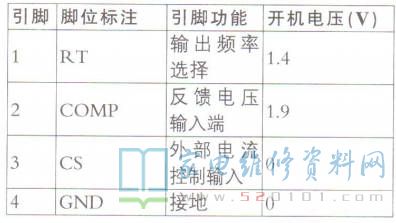 引脚 脚位标注 引脚功能 开机电压(V)
1 RT 输出频率选择 1.4
2 COMP 反馈电压输入端 1.9
3 CS 外部电流控制输入 0
4 GND 接地 0
家电维修资料网
www.520101.com